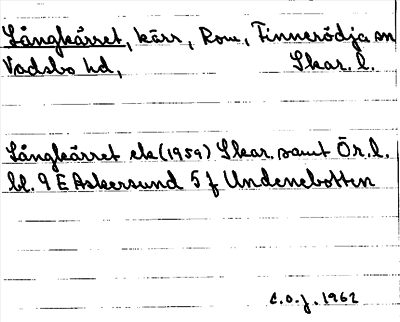 Långkärret, kärr, Row, Finnerödja sn
Vadsbo hd, Skar. l.
Långkärret ek (1959) Skar. samt Ör. l.
bl. 9 E Askersund 5 f Undenebotten
C.O.J. 1962